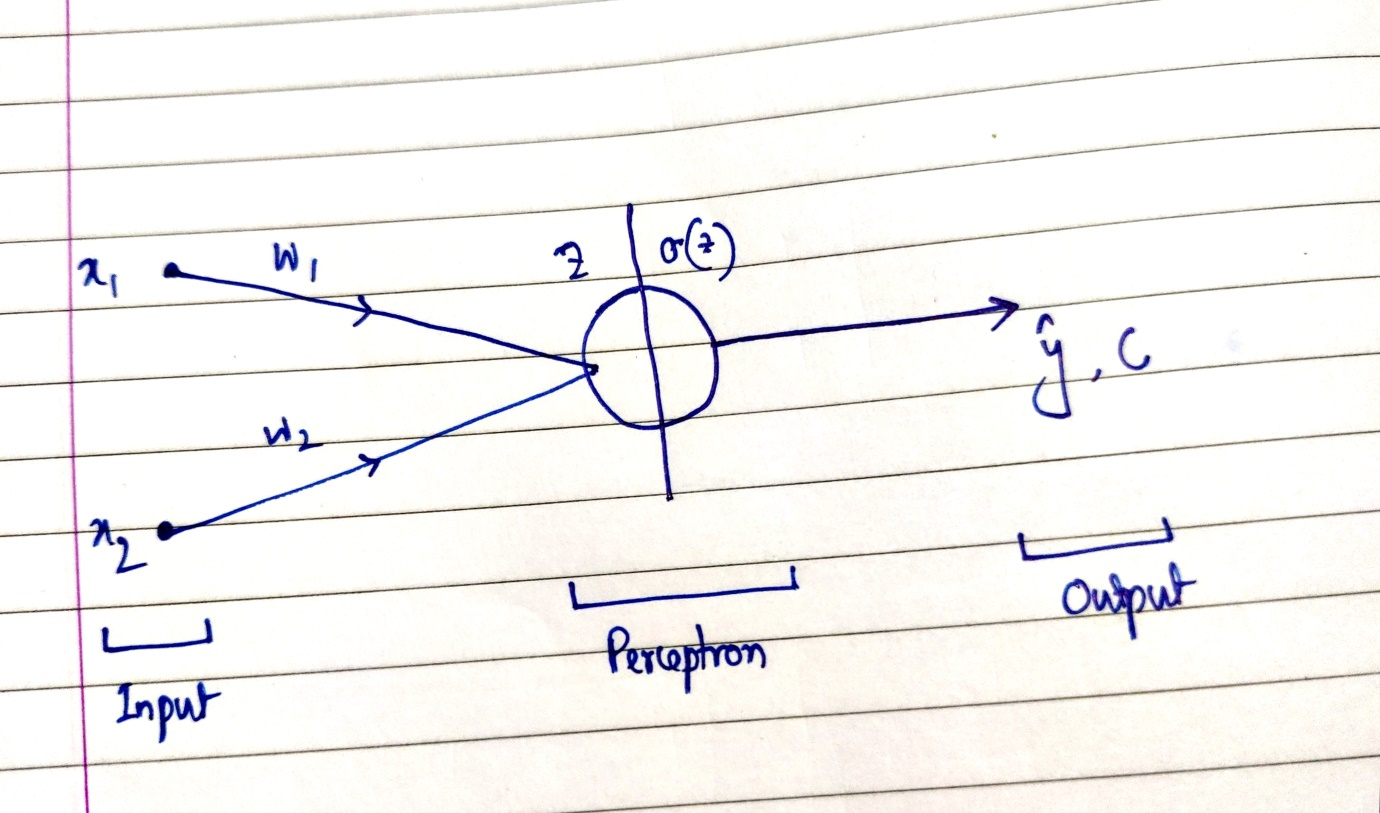 x₁
w₁
z
σ(z)
ŷ, C
w₂
x₂
Input
Perceptron
Output